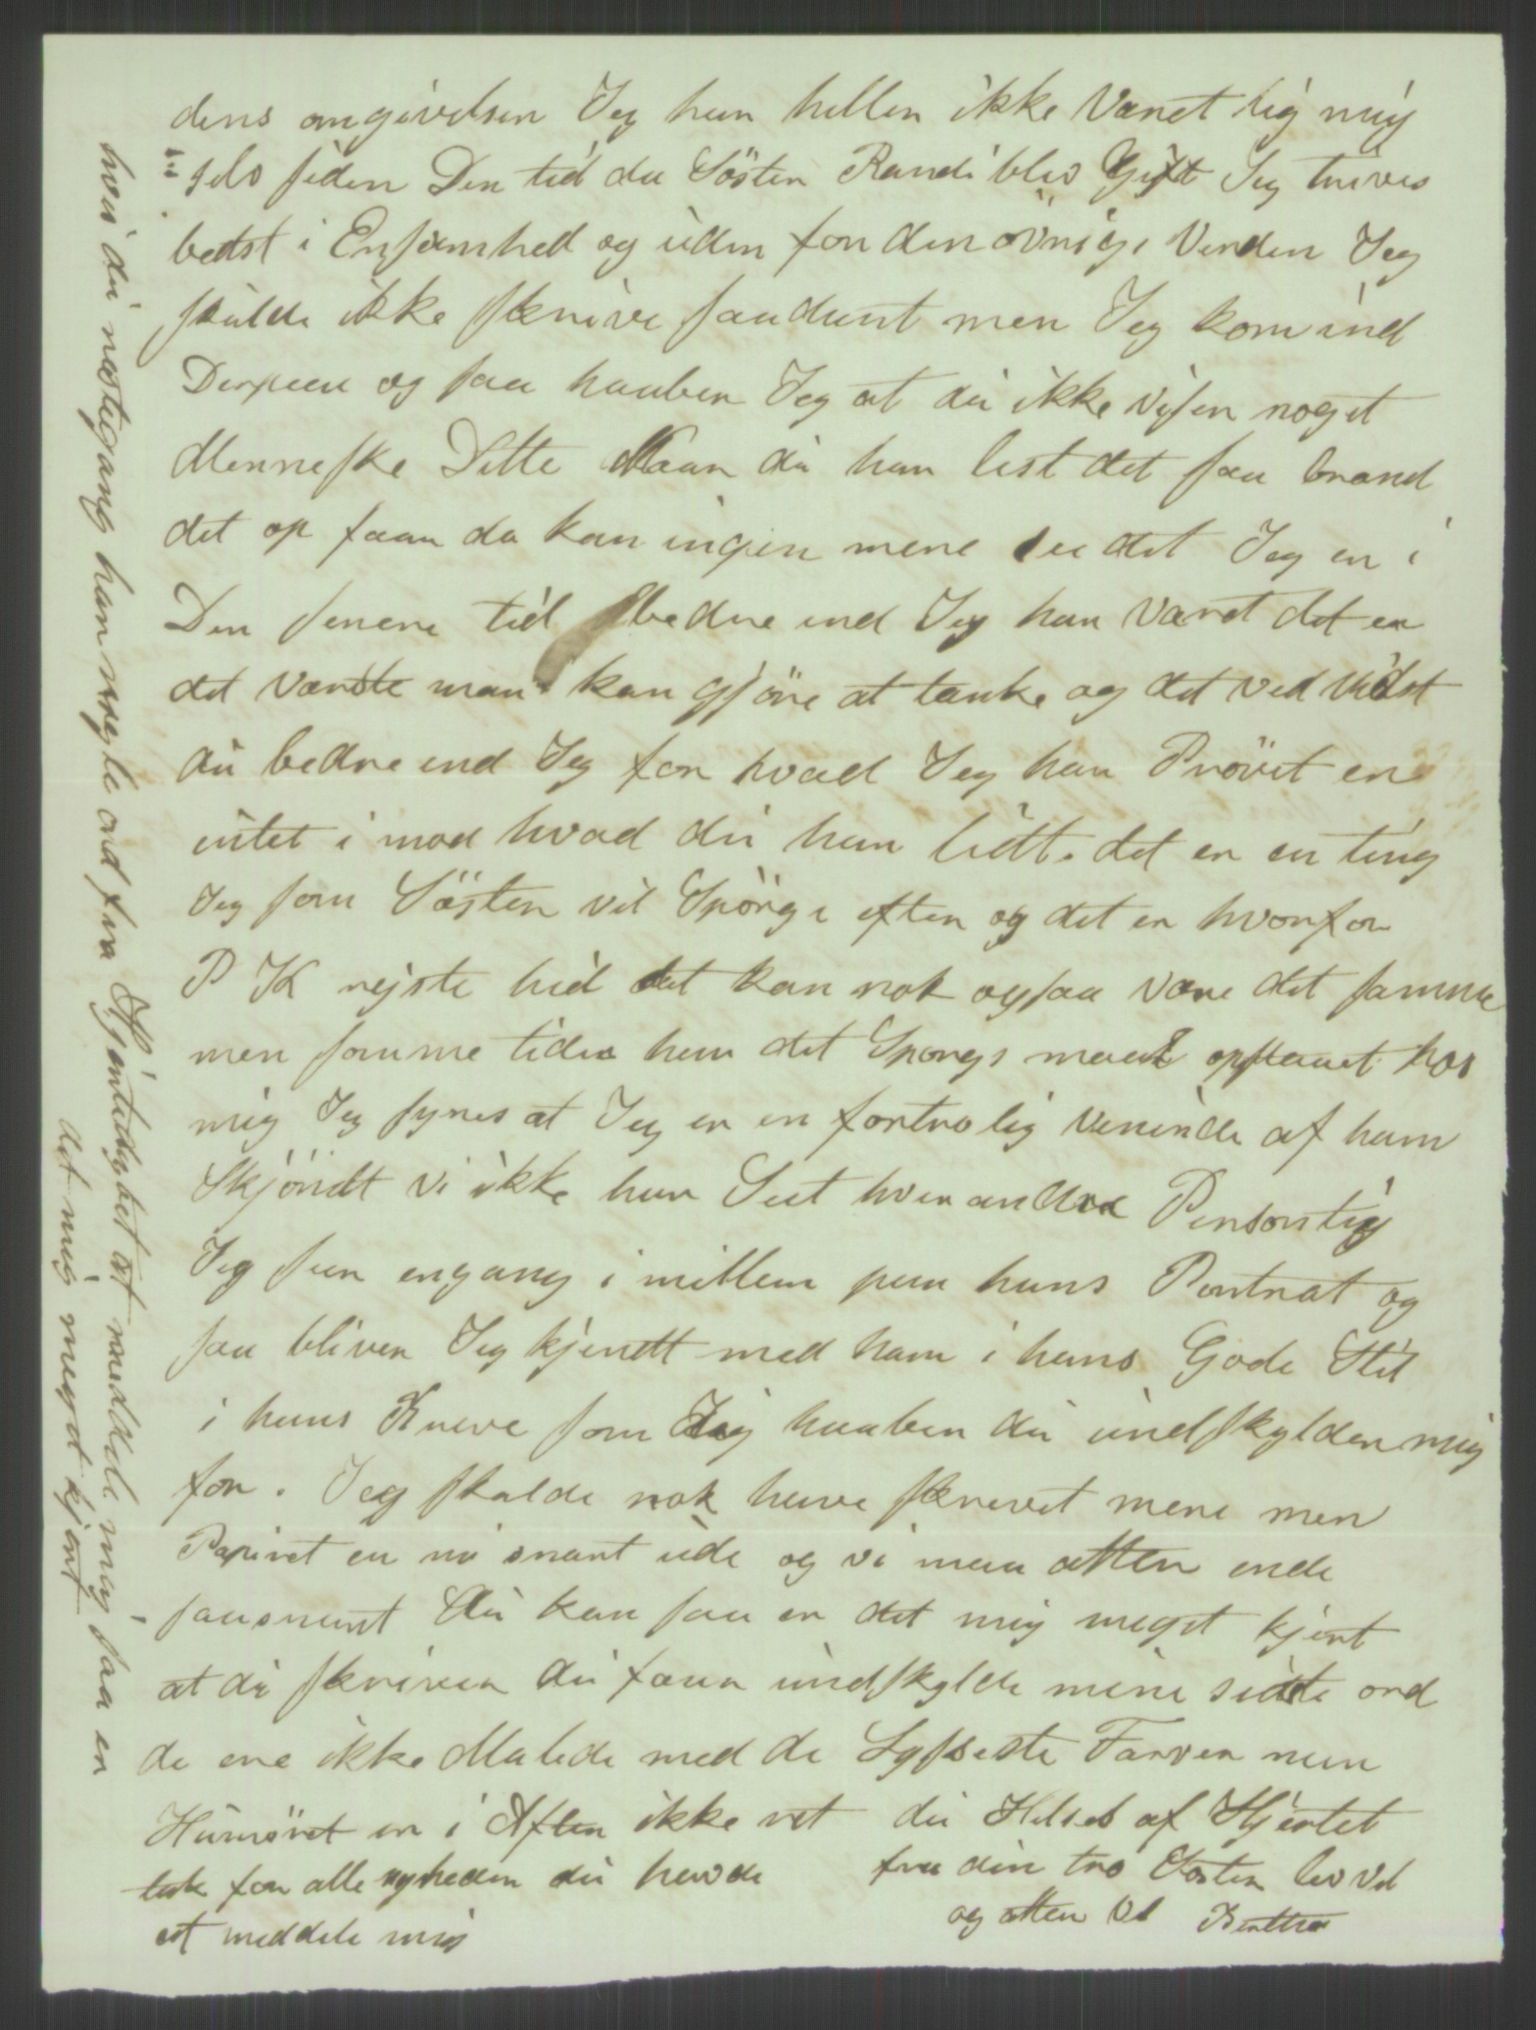 dens omgivelser Jeg har heller ikke Været lig mig
selv siden Den tid da Söster Randi blev Gift Jeg trives
bedst i Ensomhed og uden for den övrige Verden Jeg
skulde ikke skrive saadant men Jeg kom ind
Derpaa og saa haaber Jeg at du ikke viser noget
Menneske Dette Naar du har lest det saa brænd
det op saa da kan ingen mere se det Jeg er i
Den senere tid bedre end Jeg har Været det er
det værste man kan gjöre at tænke og det ved vidst
du bedre end Jeg for hvad Jeg har Prövet er
intet i mod hvad du har lidt. det er en ting
Jeg som Söster vil Spörge efter og det er hvorfor
P K rejste hid det kan nok ogsaa være det samme
men somme tider har det Spørgs maal opstaaet hos
mig Jeg synes at Jeg er en fortrolig Veninde af ham
Skjöndt vi ikke har Seet hverandre Personlig
Jeg ser engang i mellem paa hans Portræt og
saa bliver Jeg kjendt med ham i hans Gode Stil
i hans Breve som Jeg haaber du undskylder mig
for. Jeg skulde nok have skrevet mere men
Papiret er nu snart ude og vi maa atter ende
saasnart du kan saa er det mig meget kjert
at du skriver du faar undskylde mine sidste ord
de ere ikke Malede med de Lyseste Farver men
Humöret er i Aften ikke ret
tak for alle nyheder du havde
at meddele mig
du Hilses af Hjertet
fra din tro Söster lev vel
og atter vel Berthe
hvis du næstegang har nogle ord fra Hjertedybet at meddele mig saa er
det mig meget kjert